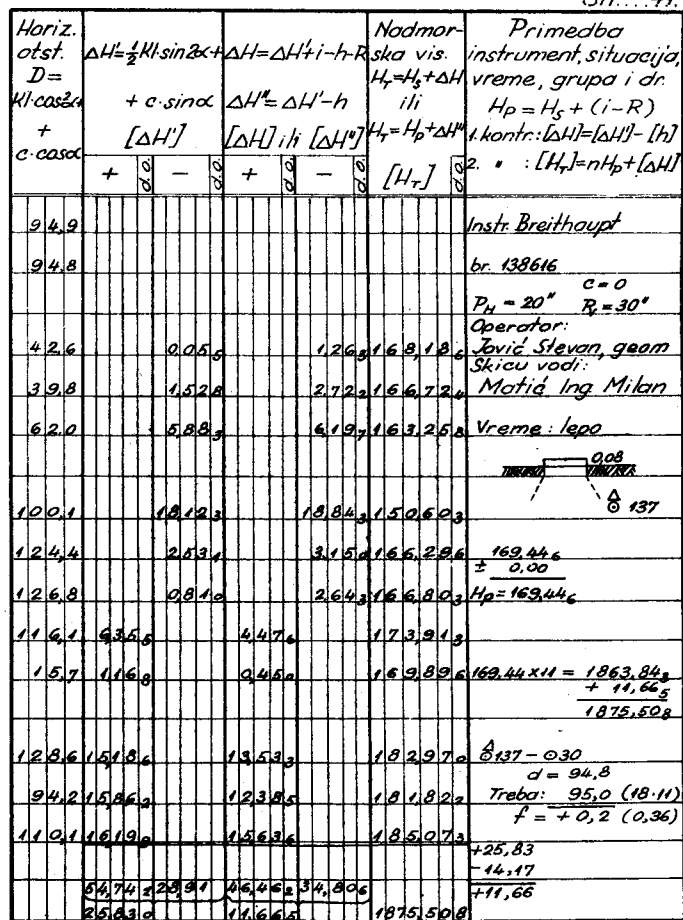 Horiz. otst. D= Kl·cos²α + c·cosα
ΔH'=½Kl·sin2α+ + c·sinα [ΔH']
ΔH=ΔH'+i-h-R ΔH"=ΔH'-h [ΔH] ili [ΔH"]
Nadmorska vis. H_T=H_s+ΔH ili H_T=H_p+ΔH" [H_T]
Primedba
instrument, situacija,
vreme, grupa i dr.
H_P = H_s + (i-R)
1. kontr.: [ΔH]=[ΔH']-[h]
2. " : [H_T]=nH_p+[ΔH]
+ d.o. - d.o. + d.o. - d.o. d.o.
94,9 Instr. Breithaupt
94,8 br. 138616
c = 0
P_H = 20" R_v = 30"
Operator:
42,6 0,05₅ 1,26₅ 168,18₆ Jović Stevan, geom
Skicu vodi:
39,8 1,52₈ 2,72₂ 166,72₄ Matić Ing Milan
62,0 5,88₃ 6,19₇ 163,25₈ Vreme: lepo
0,08
100,1 18,12₃ 18,84₃ 150,60₃ 137
124,4 2,53₁ 3,15₀ 166,29₆ 169,44₆
± 0,00
126,8 0,81₀ 2,64₃ 166,80₃ Hp = 169,44₆
116,1 6,35₅ 4,47₆ 173,91₃
15,7 1,16₈ 0,45₀ 169,89₆ 169,44 x 11 = 1863,84₃
+ 11,66₅
1875,50₈
128,6 15,18₆ 13,53₃ 182,97₀ 137 - ⊙30
d = 94,8
94,2 15,86₂ 12,38₅ 181,82₂ Treba: 95,0 (18·11)
f = + 0,2 (0,36)
110,1 16,19₉ 15,63₆ 185,07₃
+25,83
-14,17
54,74₂ 28,91 46,46₂ 34,80₆ +11,66
25,83₀ 11,66₅ 1875,50₈